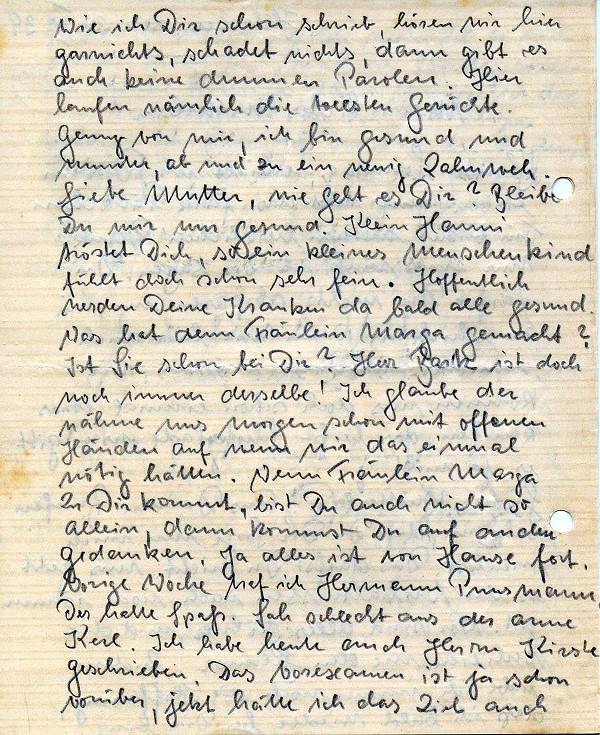 Wie ich Dir schon schrieb, hören wir hier
garnichts, schadet nichts, dann gibt es
auch keine dummen Parolen. Hier
laufen nämlich die tollsten Gerüchte.
Genug von mir, ich bin gesund und
munter, ab und zu ein wenig Zahnweh.
Liebe Mutter, wie geht es Dir? Bleibe
Du mir nur gesund. Klein Hanni
tröstet Dich, so ein kleines Menschenkind
fühlt doch schon sehr fein. Hoffentlich
werden Deine Kranken da bald alle gesund.
Was hat denn Fräulein Marga gemacht?
Ist Sie schon bei Dir? Herr ist doch
noch immer derselbe! Ich glaube der
nähme uns morgen schon mit offenen
Händen auf wenn wir das einmal
nötig hätten. Wenn Fräulein Marga
zu Dir kommt, bist Du auch nicht so
allein, dann kommst Du auf andere
gedanken. Ja alles ist von Hause fort.
Vorige Woche traf ich Hermann
Der hatte Spaß. Sah schlecht aus der arme
Kerl. Ich habe heute auch Herrn Kirste
geschrieben. Das Vorexamen ist ja schon
vorüber, jetzt hätte ich das Ziel auch